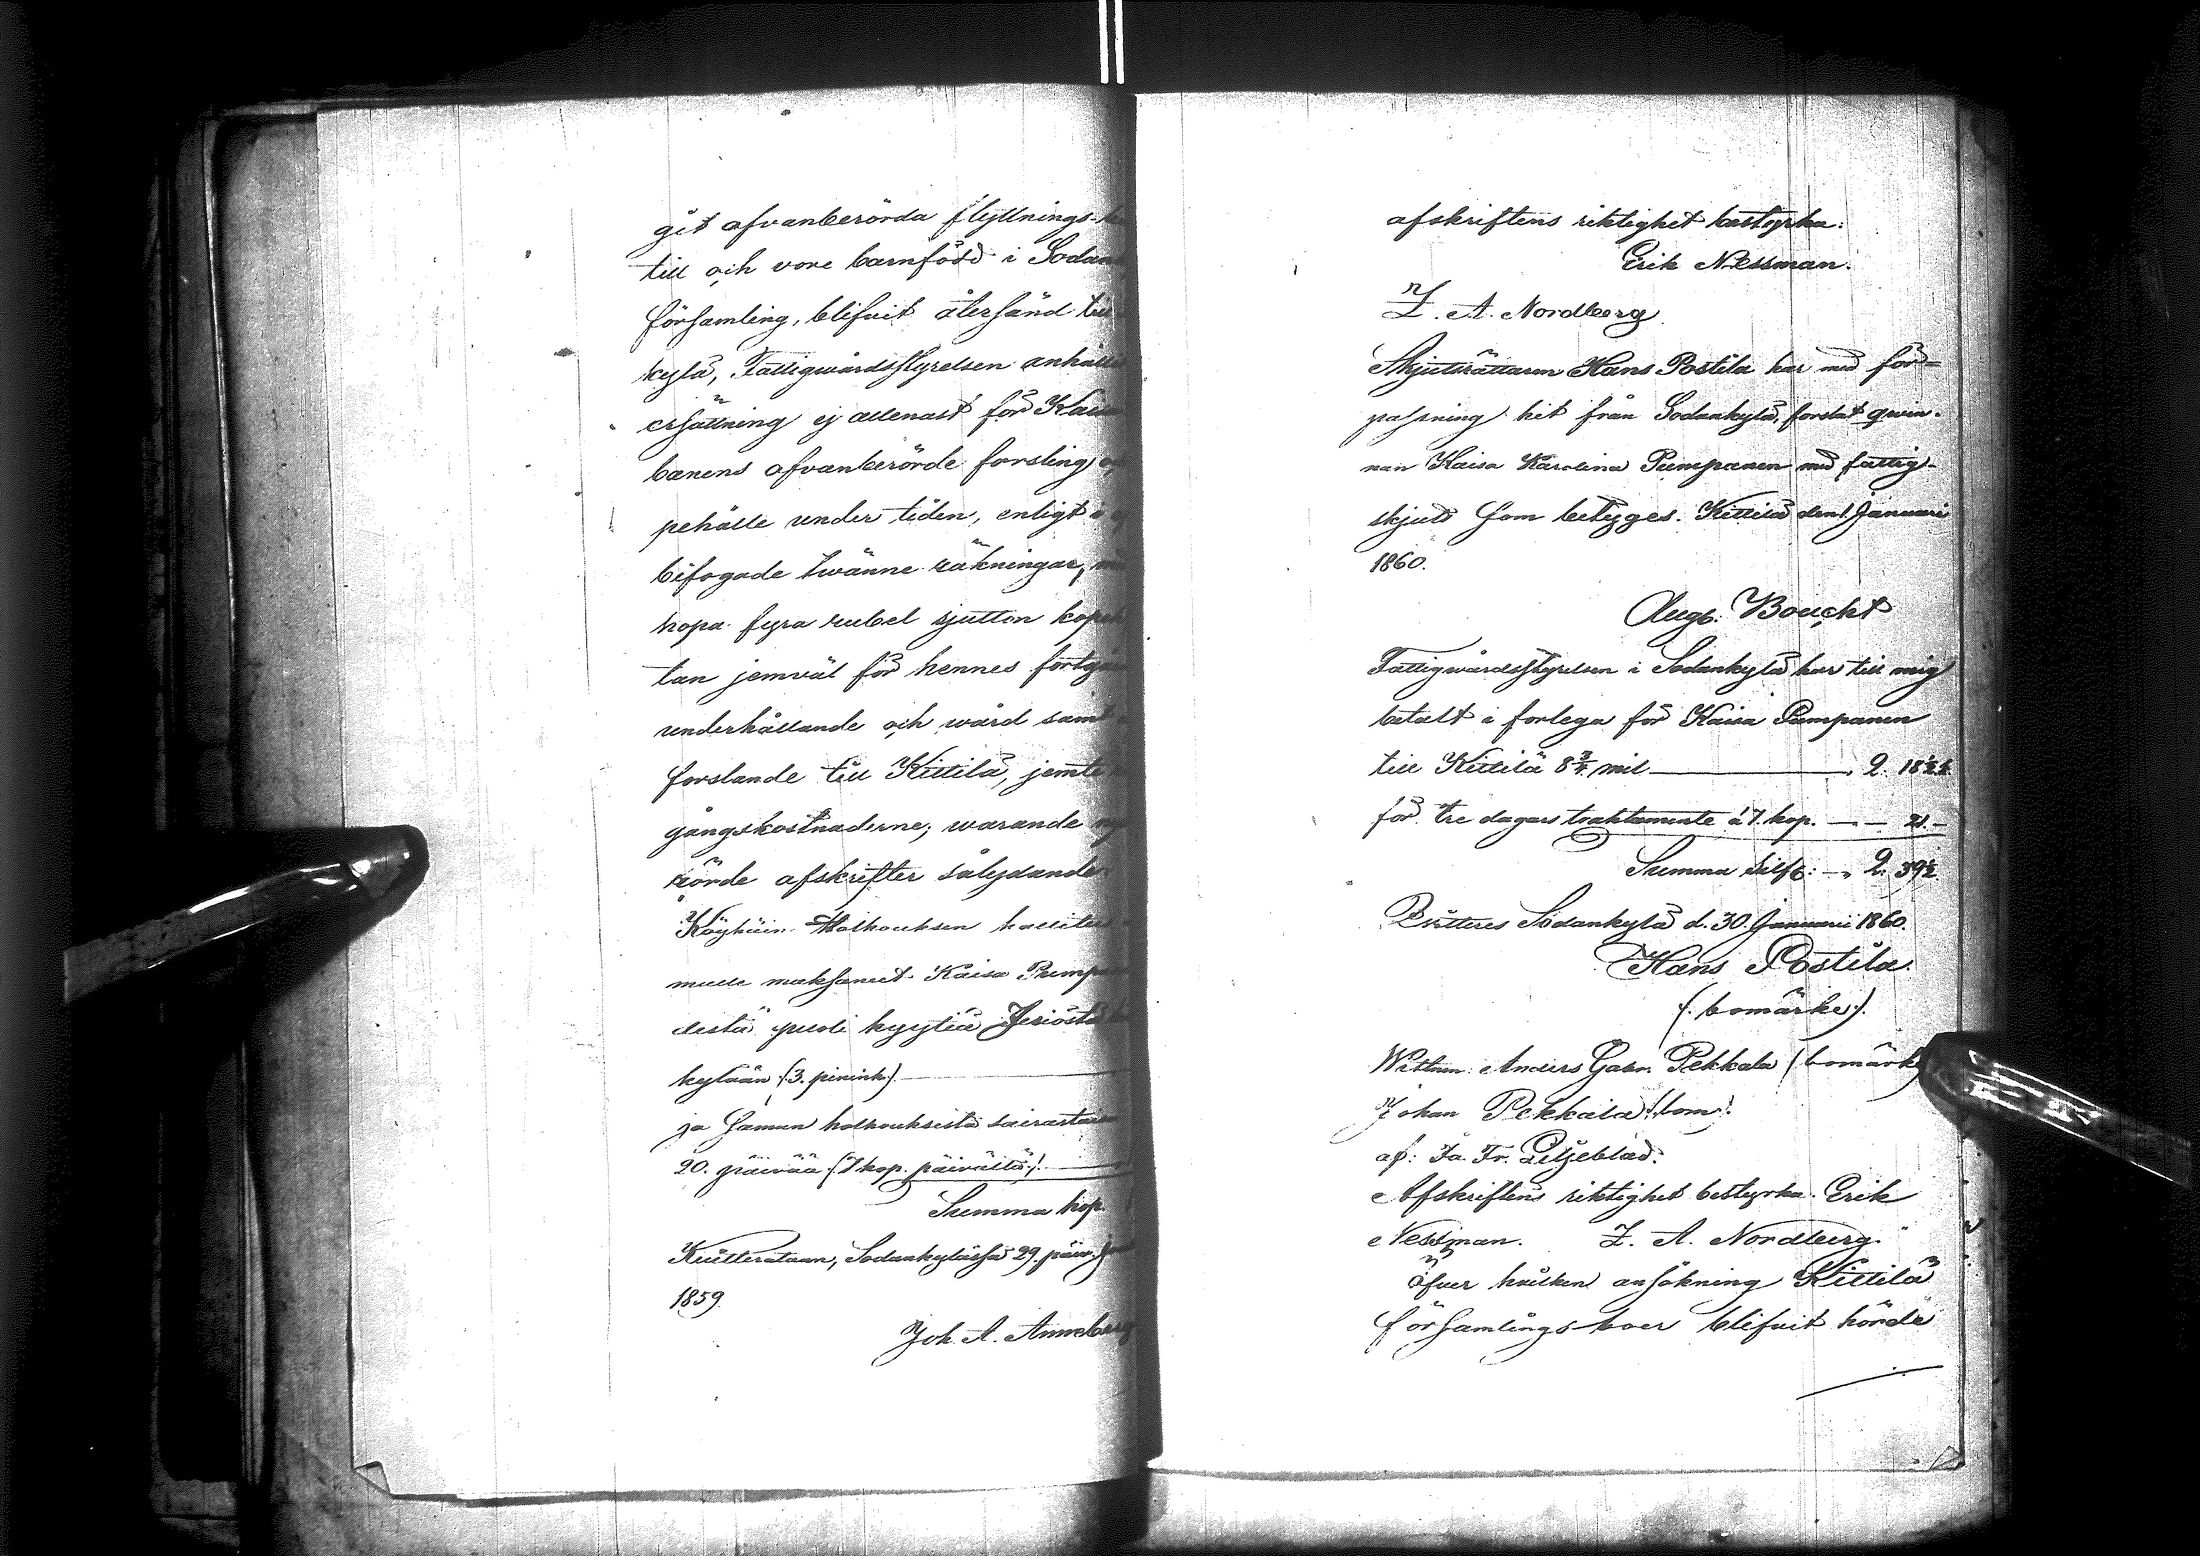 git ofvanberörda flyttnings-
till och vore barnfödd i Sodan
församling, blifvit återsänd till
kylä, Fattigvårdsstyrelsen anhålle
ersättning ej allenast för Kaisa
banens ofvanberörde forsling
pehälle under tiden, enligt
bifogade twänne räkningar,
hopa fyra rubel sjutton kop
tan jemväl för hennes
underhållande och wård samt
forslande till Kittilä, jemte
gångskostnaderne; warande
rörde afskrifter sålydande
"Köyhäin Holhouksen hallitu
mulle maksanut Kaisa Pump
destä puoli kyytiä Jeriöstä
kylään (3. penink.)
ja saman holhouksesta sairasta
20. päivää (7 kop. päivältä)
Summa kop.
Kvitterataan, Sodankylässä 29. päiv.
1859.
Joh. A. Anneberg
afskriftens riktighet bestyrka:
Erik Nessman.
Z. A. Nordberg
Skjutsrättaren Hans Postila har med för-
passning hit från Sodankylä, forslat qvin-
nan Kaisa Karolina Pumpanen med fattig-
skjuts som betyges. Kittilä den 1. Januari
1860.
Aug. Boucht
Fattigwårdsstyrelsen i Sodankylä har till mig
betalt i forlega för Kaisa Pumpanen
till Kittilä 8 3/4 mil 2. 18 1/2
för tre dagars traktamente á 7. kop. — — 21. –
Summa Silf: — 2. 39 1/2
Qvitteres Sodankylä d. 30. Januarii 1860.
Hans Postila.
(bomärke).
Wittna: Anders Gabr. Pekkala (bomärke
Johan Pekkala (bom)
af: Ja. Fr. Liljeblad.
Afskriftens riktighet bestyrka. Erik
Nessman. Z. A. Nordberg."
öfver hvilken ansökning Kittilä
församlingsboer blifvit hörde